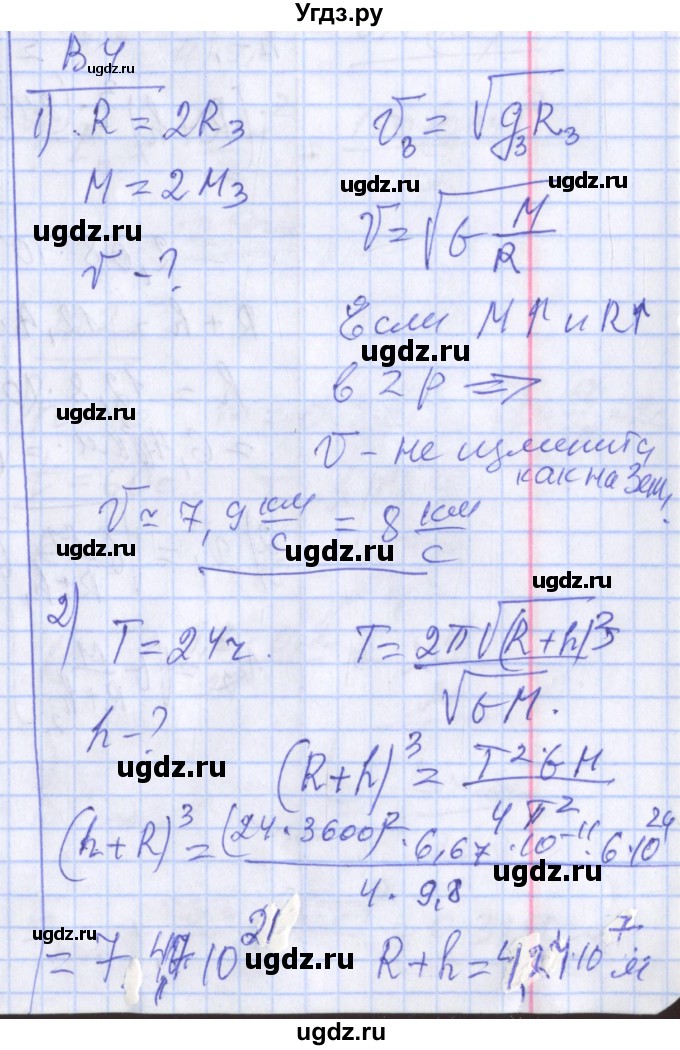 Угдз.ру
В 4
ugdz.ru
1) R = 2R₃
v₃ = √g₃R₃
ugdz.ru ugdz.ru
M = 2M₃
ugdz.ru
v = √G M/R
v - ?
Если M↑ и R↑
ugdz.ru
в 2 р ⇒
ugdz.ru
v - не изменится
как на Зем.
v ≃ 7,9 км/с = 8 км/с
ugdz.ru ugdz.ru
ugdz.ru
2) T = 24ч.
T = 2π√(R+h)³ / √GM.
h - ?
ugdz.ru
(R+h)³ = T²·GM / 4π²
(h+R)³ = (24·3600)²·6,67·10⁻¹¹·6·10²⁴ / 4·9,8
ugdz.ru
= 7,47·10²¹
ugdz.ru
R+h = 4,24·10⁷ м
ugdz.ru
ugdz.ru